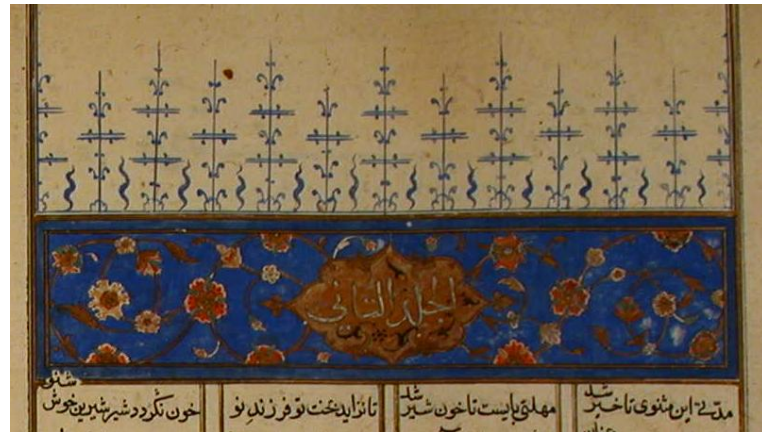 الجلد الثانی
مدتی این مثنوی تاخیر شد مهلتی بایست تا خون شیر شد
تا نزاید بخت تو فرزند نو خون نگردد شیر شیرین خوش شنو